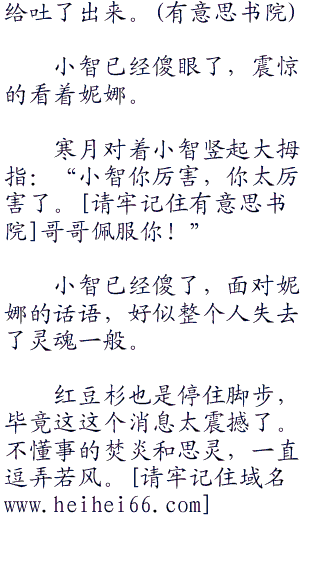 给吐了出来。(有意思书院)
小智已经傻眼了，震惊
的看着妮娜。
寒月对着小智竖起大拇
指：“小智你厉害，你太厉
害了。[请牢记住有意思书
院]哥哥佩服你！”
小智已经傻了，面对妮
娜的话语，好似整个人失去
了灵魂一般。
红豆杉也是停住脚步，
毕竟这这个消息太震撼了。
不懂事的焚炎和思灵，一直
逗弄若风。[请牢记住域名
www.heihei66.com]